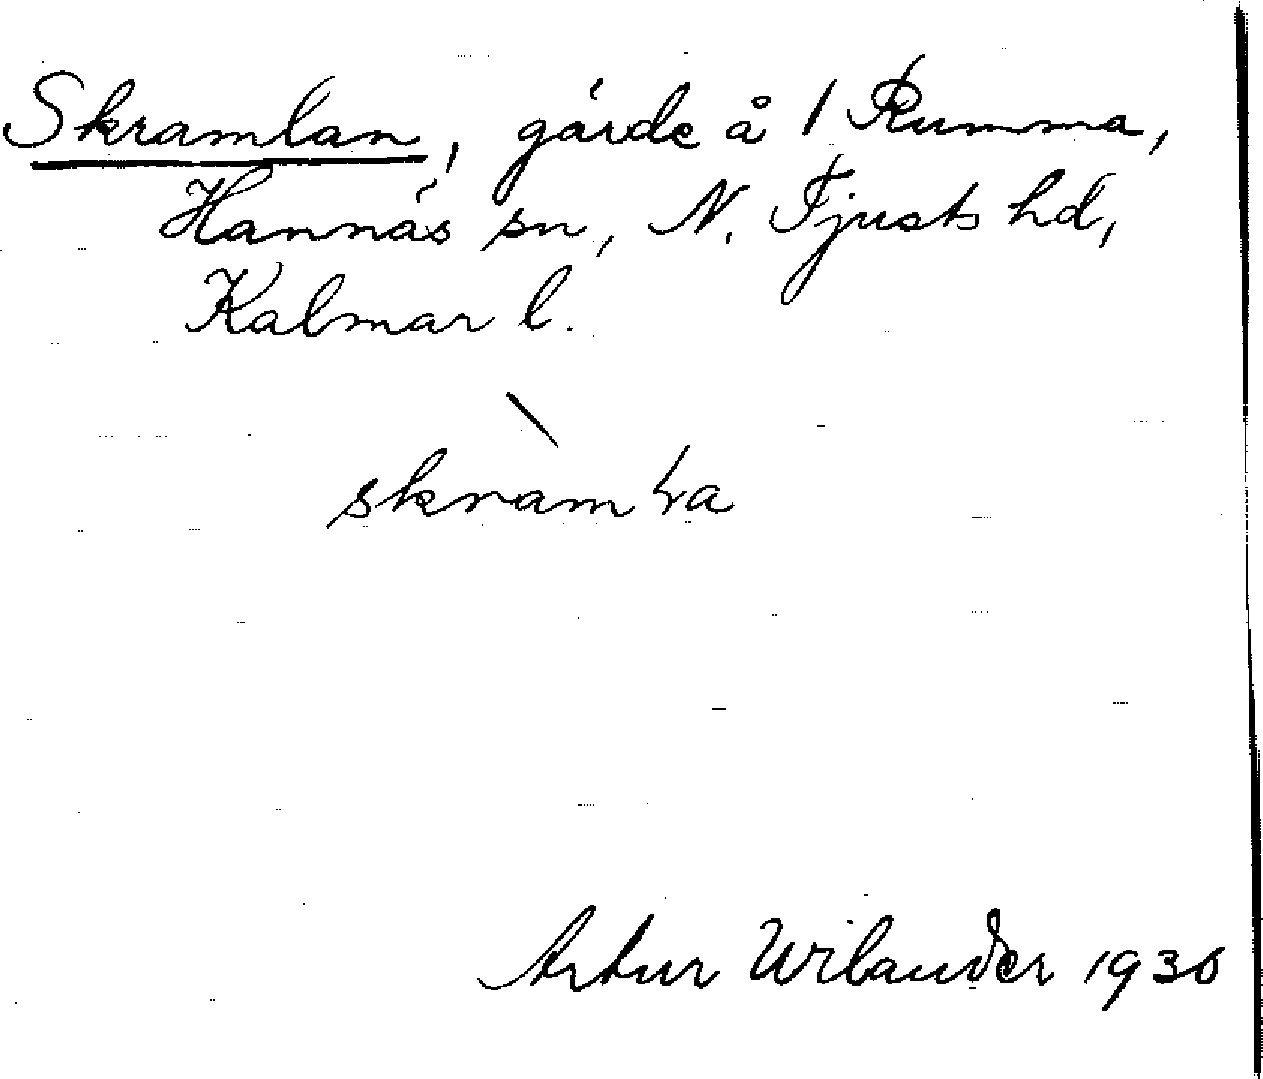 Skramlan, gärde å 1 Rumma,
Hannäs sn, N. Tjusts hd,
Kalmar l.
Artur Wilander 1930